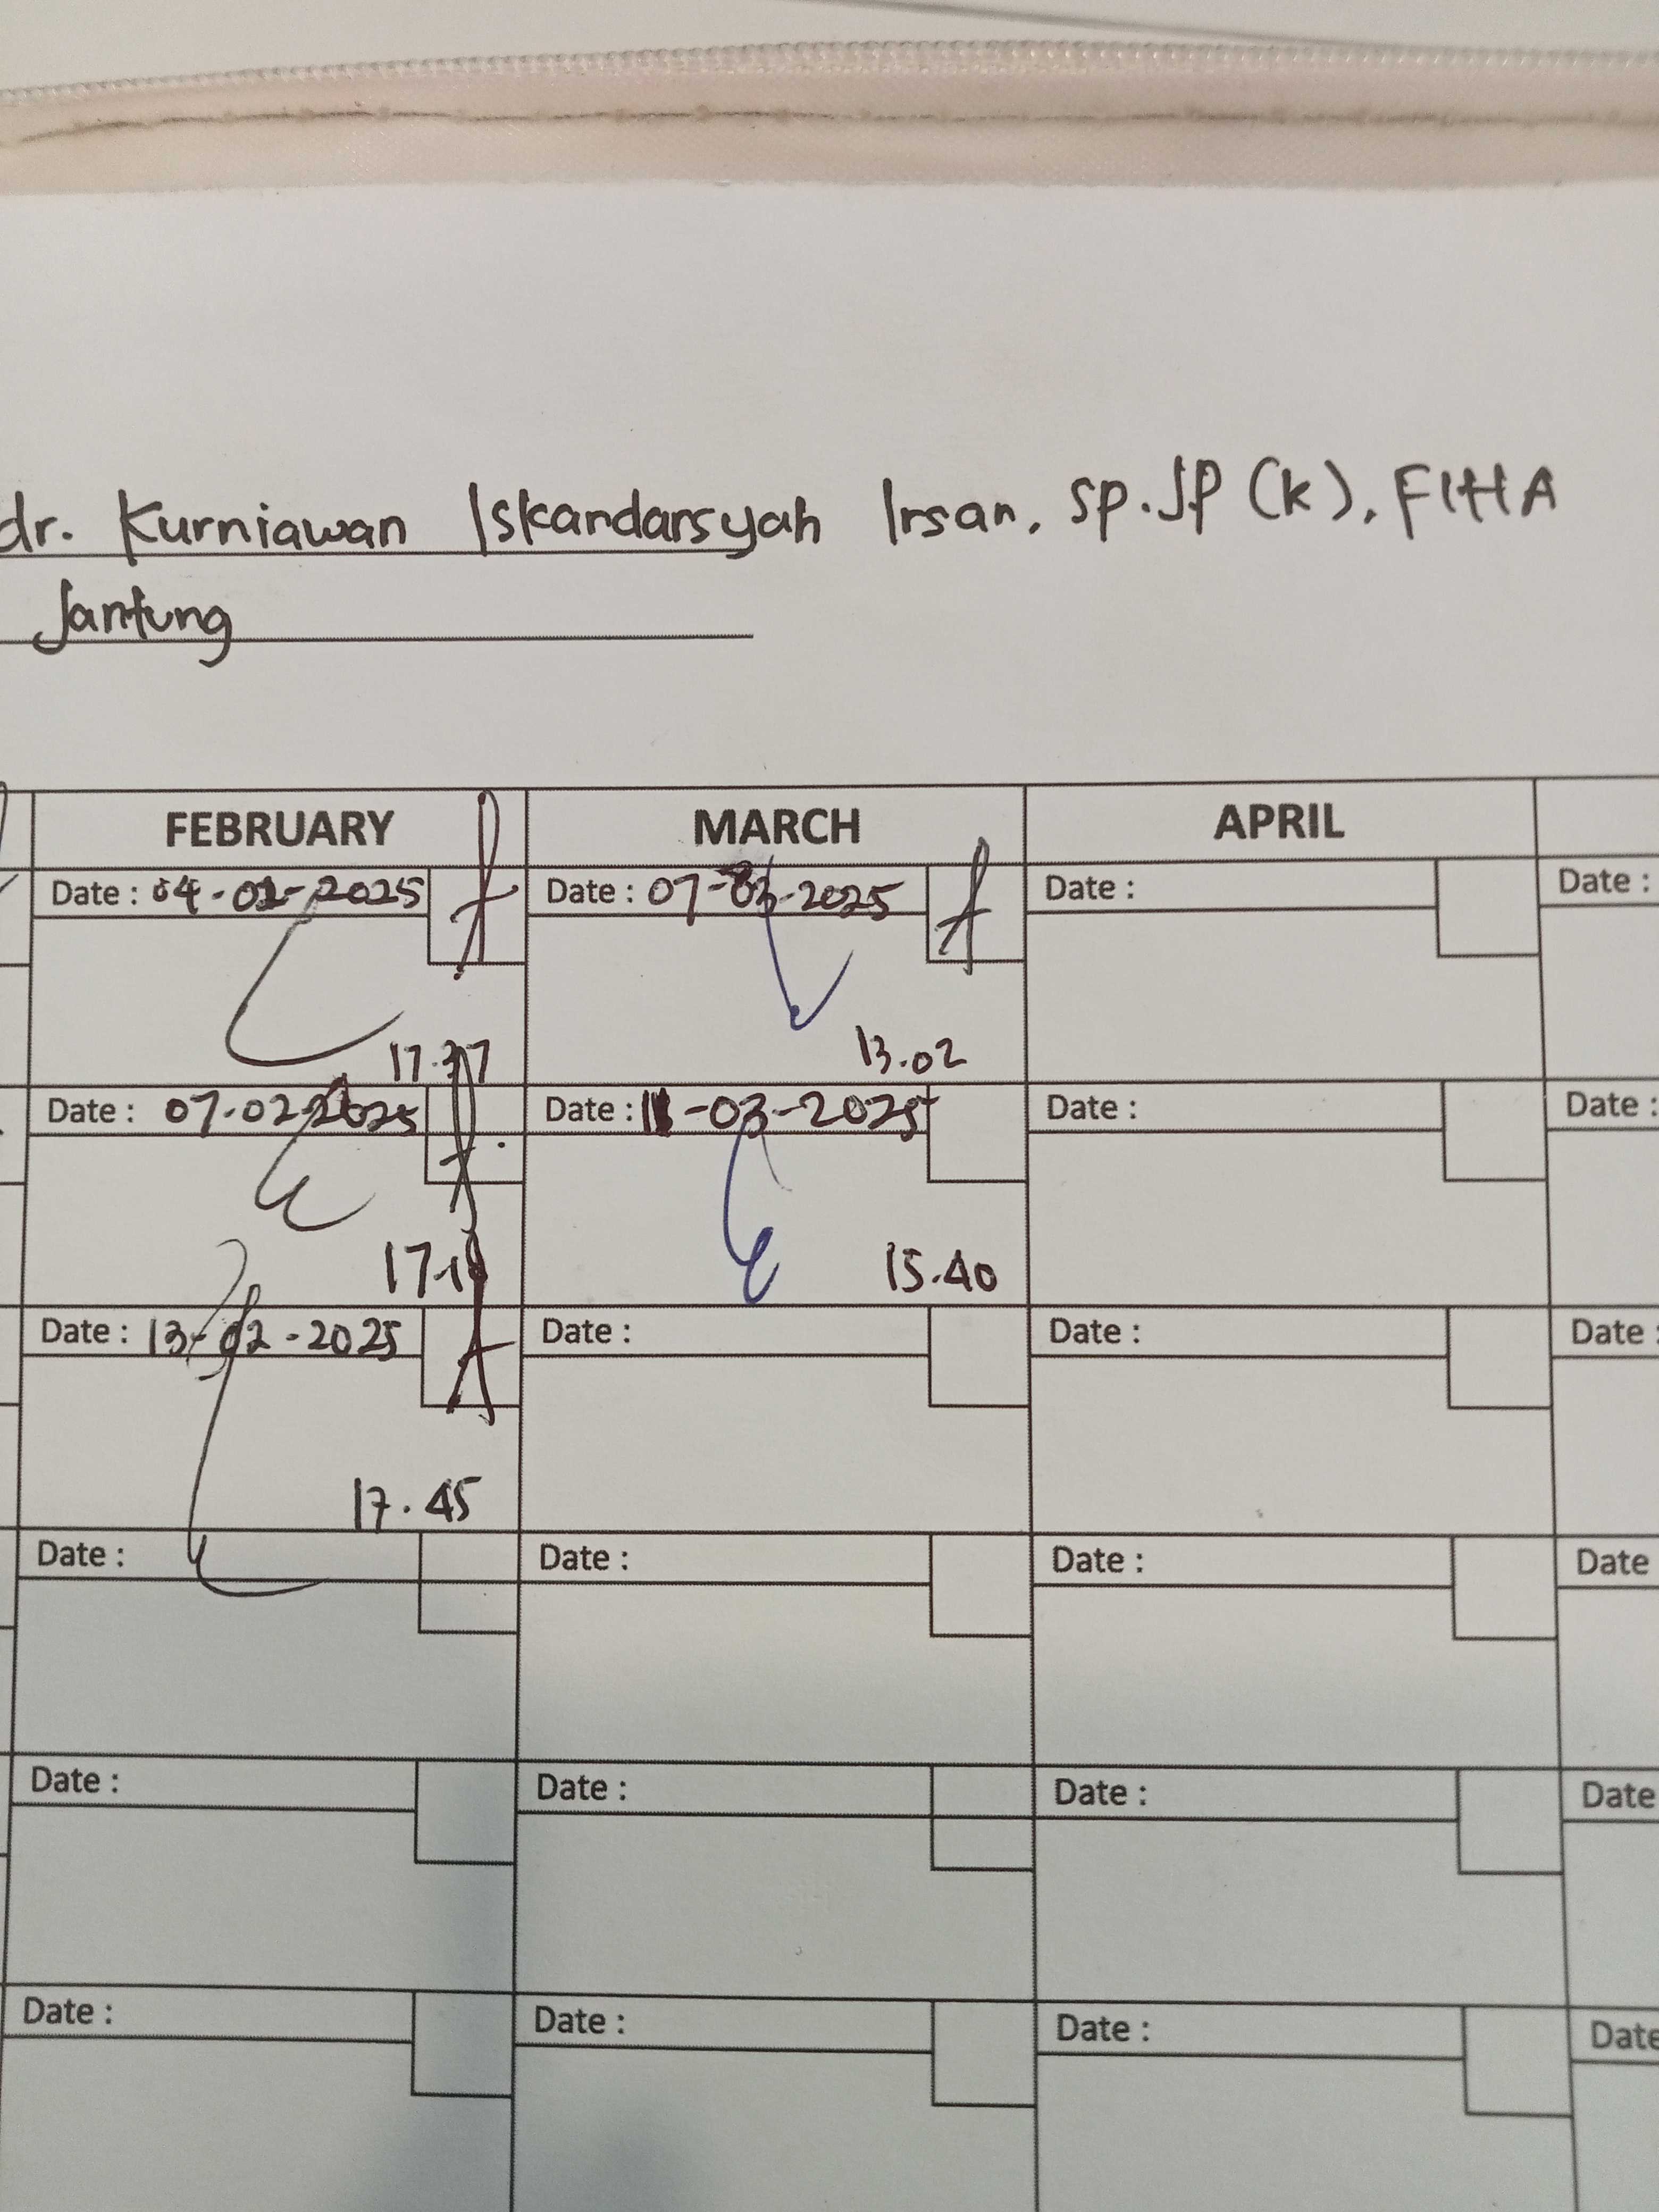 dr. Kurniawan Iskandarsyah Irsan, Sp.JP (K), FIHA
Jantung
FEBRUARY MARCH APRIL
Date : 04-02-2025 Date : 07-03-2025 Date : Date :
17.37 13.02
Date : 07-02-2025 Date : 11-03-2025 Date : Date :
15.40
Date : 13-02-2025 Date : Date : Date :
17.45
Date : Date : Date : Date
Date : Date : Date : Date
Date : Date : Date : Date